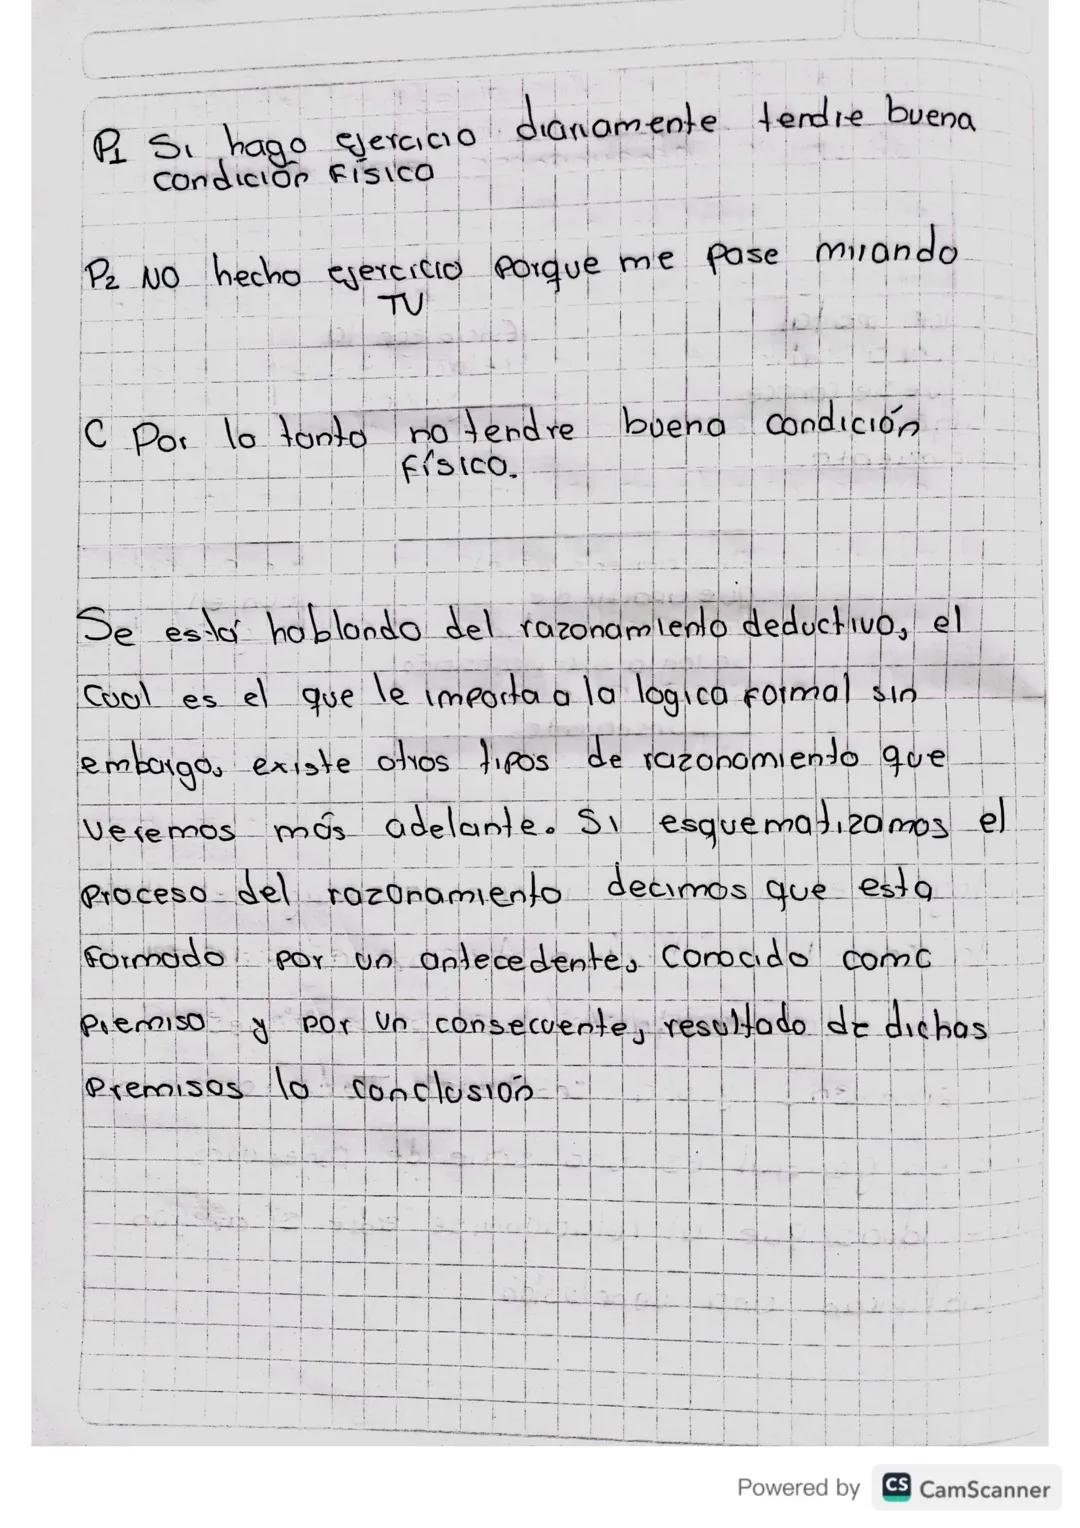 P1 Si hago ejercicio diariamente tendre buena
condición Física
P2 NO hecho ejercicio porque me pase mirando
TV
C Por lo tanto no tendre buena condición
física.
Se está hablando del razonamiento deductivo, el
Cual es el que le importa a la logica formal sin
embargo, existe otros tipos de razonamiento que
Veremos más adelante. Si esquematizamos el
Proceso del razonamiento decimos que esta
Formado por un antecedente, Conocido como
Premisa y por un consecuente, resultado de dichas
Premisas la conclusión
Powered by CS CamScanner